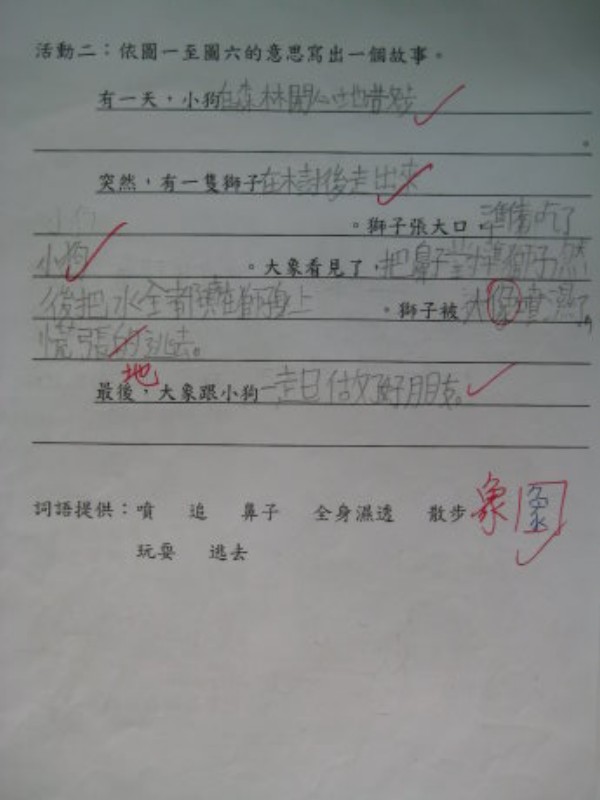 活動二：依圖一至圖六的意思寫出一個故事。
有一天，小狗在森林開心地散步
。
突然，有一隻獅子在樹後走出來
。獅子張大口，準備吃了
小狗。大象看見了，把鼻子對準獅子然
後把水全都噴在獅身上。獅子被大噴濕了，
慌張的逃去。
地
最後，大象跟小狗一走日做了好朋友。
詞語提供：噴 追 鼻子 全身濕透 散步
象
玩耍 逃去